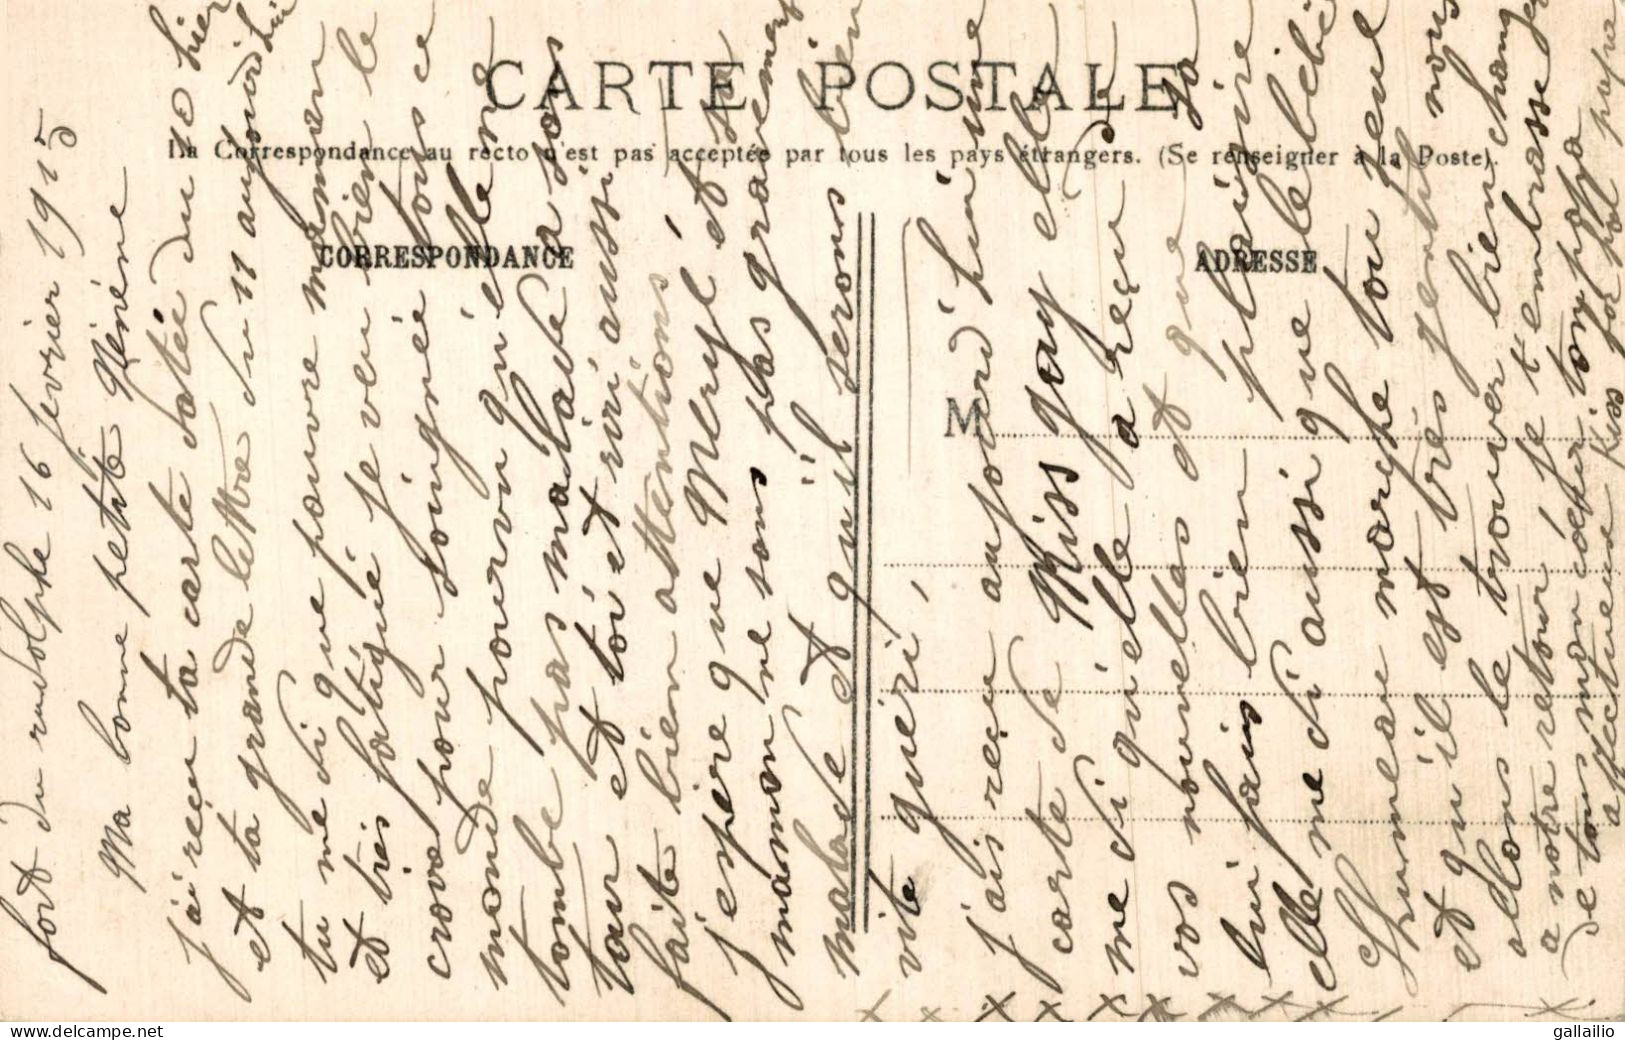 CARTE POSTALE
La Correspondance au recto n'est pas acceptée par tous les pays étrangers. (Se renseigner à la Poste).
CORRESPONDANCE
ADRESSE
M
fort du rudolphe 16 fevrier 1915
Ma bonne petite Nénéme
j'ai réçu ta carte datée du 10 hier
et ta grande lettre du 11 aujourd'hui
tu me di que pauvre maman
et tries fatigué je veu bien le
crove pour soingnée tous ce
monde pourvu qu'elle ne
tombe pas malade a son
tour et toi et riri aussi
faite bien attentions
j'espére que Meryl et sa
maman ne sons pas gravement
malade et qu'il serons bien
vite guéri,
j'ais reçu aujourd'hui une
carte de Miss Gay elle
me di qu'elle a reçu de
vos nouvelles et que ça
lui fais bien plaisire
elle me di aussi que le bébé
marche tou seul
et qu'il est trés gentil nous
allons le trouver bien changer
a notre retour je t'embrasse
de tous mon cœur ton papa
affectueux Kiss for Pol papa
gallailio